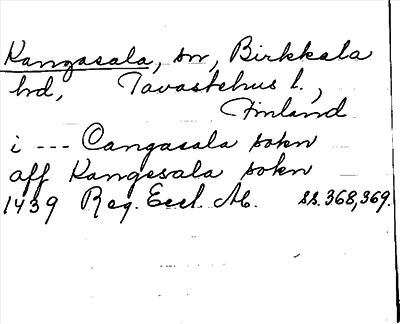 Kangasala, sn, Birkkala
hd, Tavastehus l.,
Finland
i --- Cangasala sokn
aff Kangesala sokn
1439 Reg. Eccl. Ab. ss. 368, 369.